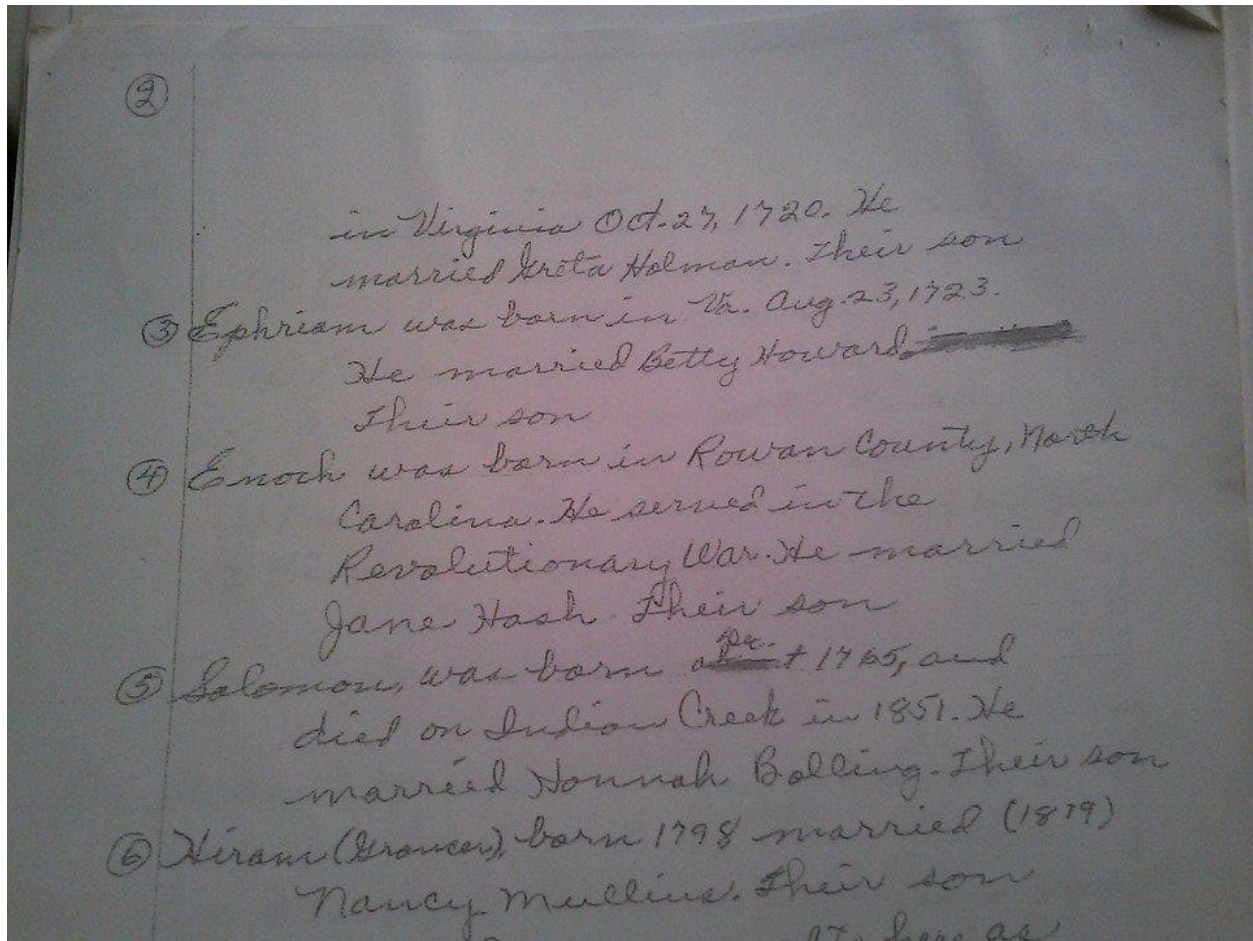 ②
in Virginia Oct. 27, 1720. He
married Greta Holman. Their son
③ Ephriam was born in Va. Aug. 23, 1723.
He married Betty Howard
Their son
④ Enoch was born in Rowan County, North
Carolina. He served in the
Revolutionary War. He married
Jane Hash. Their son
⑤ Solomon, was born 1765, and
died on Indian Creek in 1851. He
married Honnah Bolling. Their son
⑥ Hiram (Grancer), born 1798 married (1819)
Nancy Mullins. Their son
here as